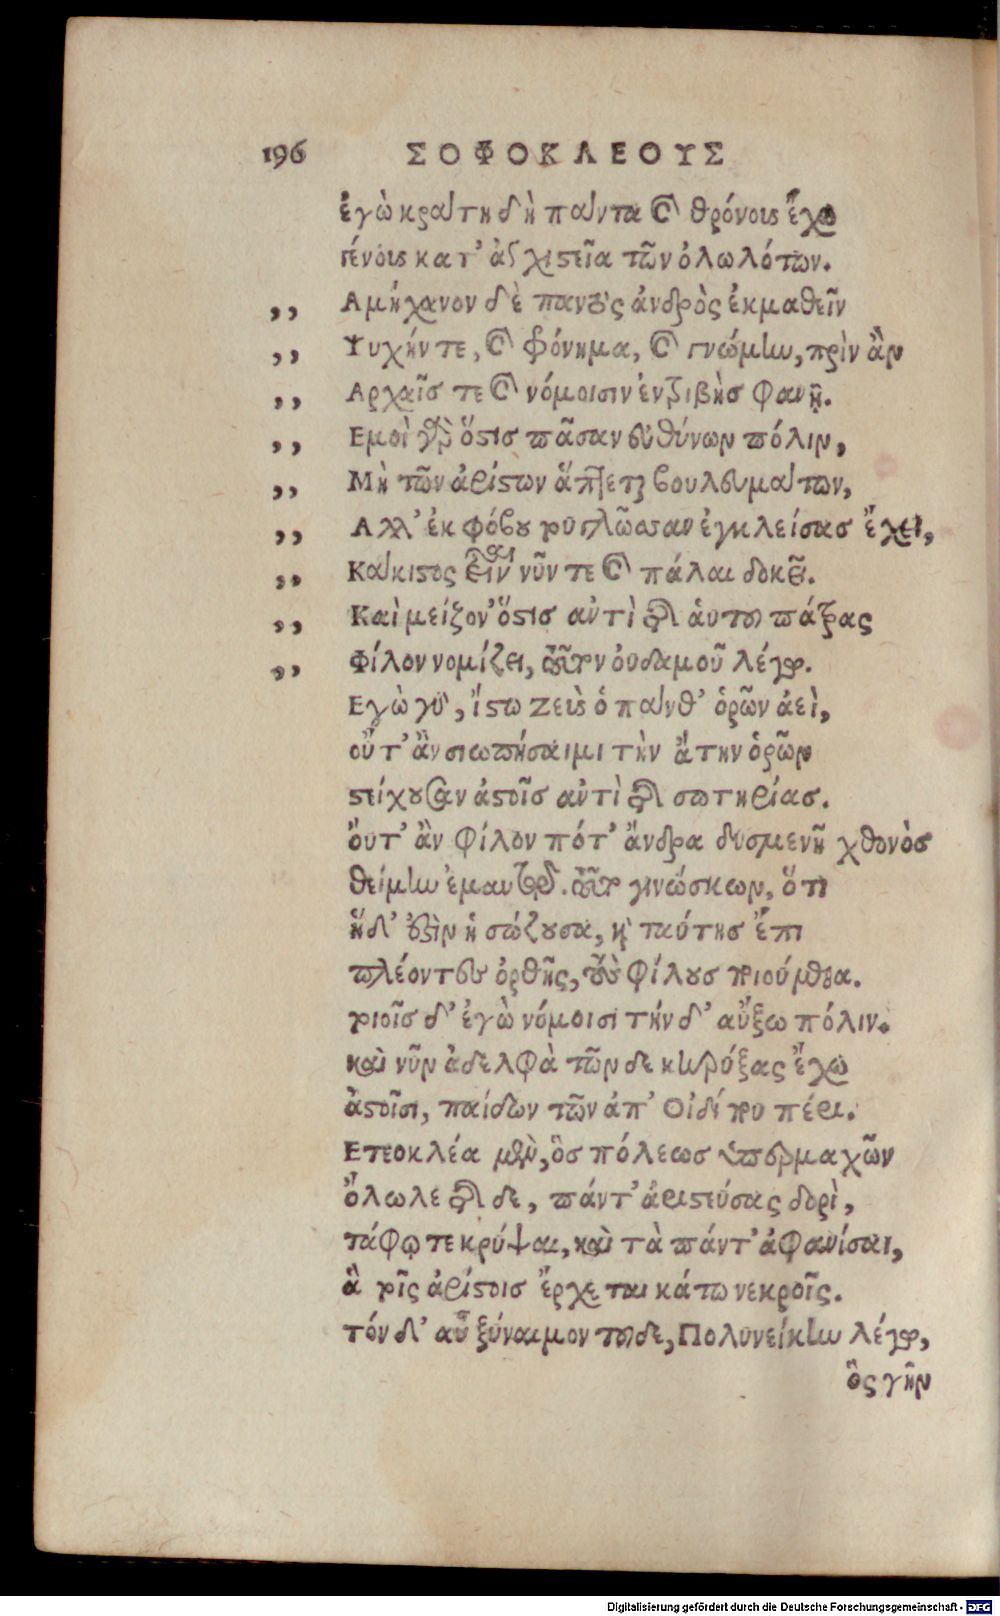 196 ΣΟΦΟΚΛΕΟΥΣ
ἐγὼ κράτη δὴ πάντα καὶ θρόνους ἔχω
γένους κατ' ἀγχιστεῖα τῶν ὀλωλότων.
,, Αμήχανον δὲ παντὸς ἀνδρὸς ἐκμαθεῖν
,, Ψυχήν τε, καὶ φρόνημα, καὶ γνώμην, πρὶν ἂν
,, Αρχαῖς τε καὶ νόμοισιν ἐντριβὴς φανῇ.
,, Εμοὶ γὰρ ὅστις πᾶσαν εὐθύνων πόλιν,
,, Μὴ τῶν ἀρίστων ἅπτεται βουλευμάτων,
,, Αλλ' ἐκ φόβου του γλῶσσαν ἐγκλείσας ἔχει,
,, Κάκιστος εἶναι νῦν τε καὶ πάλαι δοκεῖ.
,, Καὶ μείζον' ὅστις ἀντὶ τῆς αὑτοῦ πάτρας
,, Φίλον νομίζει, τοῦτον οὐδαμοῦ λέγω.
Εγὼ γὰρ, ἴστω Ζεὺς ὁ πάνθ' ὁρῶν ἀεὶ,
οὔτ' ἂν σιωπήσαιμι τὴν ἄτην ὁρῶν
στείχουσαν ἀστοῖς ἀντὶ τῆς σωτηρίας.
ὄυτ' ἂν φίλον πότ' ἄνδρα δυσμενῆ χθονὸς
θείμην ἐμαυτῷ. τοῦτο γινώσκων, ὅτι
ἥδ' ἐστὶν ἡ σώζουσα, καὶ ταύτης ἔπι
πλέοντες ὀρθῆς, τοὺς φίλους ποιούμεθα.
τοιοῖσδ' ἐγὼ νόμοισι τήνδ' αὔξω πόλιν.
καὶ νῦν ἀδελφὰ τῶνδε κηρύξας ἔχω
ἀστοῖσι, παίδων τῶν ἀπ' Οἰδίπου πέρι.
Ετεοκλέα μὲν, ὃς πόλεως ὑπερμαχῶν
ὄλωλε τῆς δε, πάντ' ἀριστεύσας δορὶ,
τάφῳ τε κρύψαι, καὶ τὰ πάντ' ἀφανίσαι,
ἃ τοῖς ἀρίστοις ἔρχεται κάτω νεκροῖς.
τόν δ' αὖ ξύναιμον τοῦδε, Πολυνείκην λέγω,
ὃς γῆν
Digitalisierung gefördert durch die Deutsche Forschungsgemeinschaft - DFG